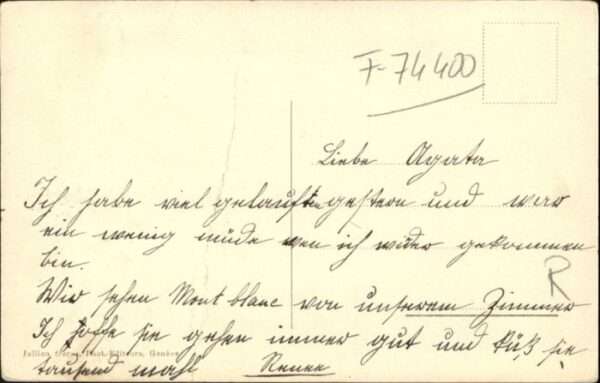 F-74400
Liebe Agata
Ich habe viel gelauft gestern und war
ein wenig müde wen ich wider gekommen
bin.
R
Wir sehen Mont blanc von unserem Zimmer
Ich hoffe sie gehen immer gut und küß sie
Jullien frères, Phot.-Editeurs, Genève
tausend mahl Renee